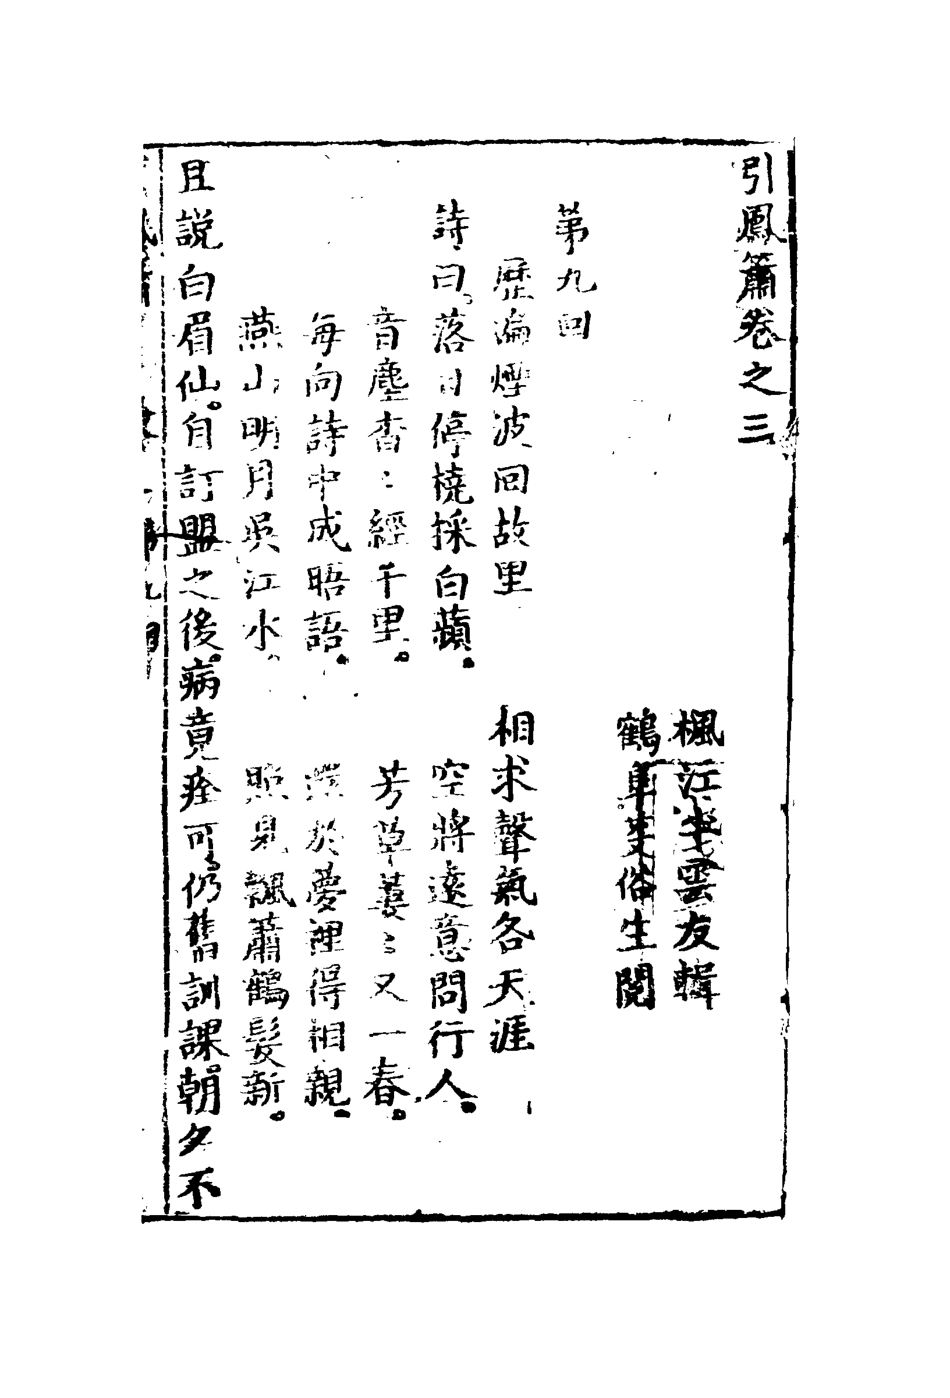 引鳳簫卷之三
楓江半雲友輯
鶴阜芟俗生閱
第九回
歷遍煙波回故里　相求聲氣各天涯
詩曰。落日停橈採白蘋。　空將遠意問行人。
音塵杳〻經千里。　芳草萋〻又一春。
每向詩中成晤語。　還於夢裡得相親。
燕山明月吳江水。　照見飄蕭鶴髮新。
且説白眉仙。自訂盟之後。病竟痊可。仍舊訓課。朝夕不